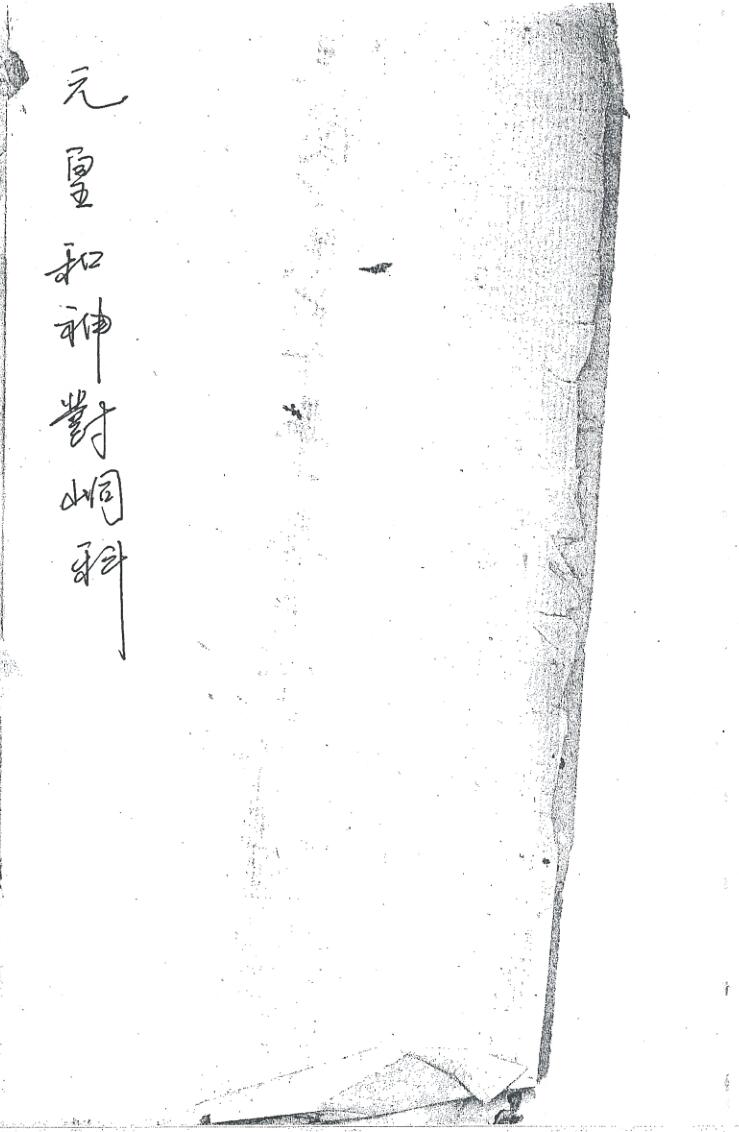 元皇和神對峒科